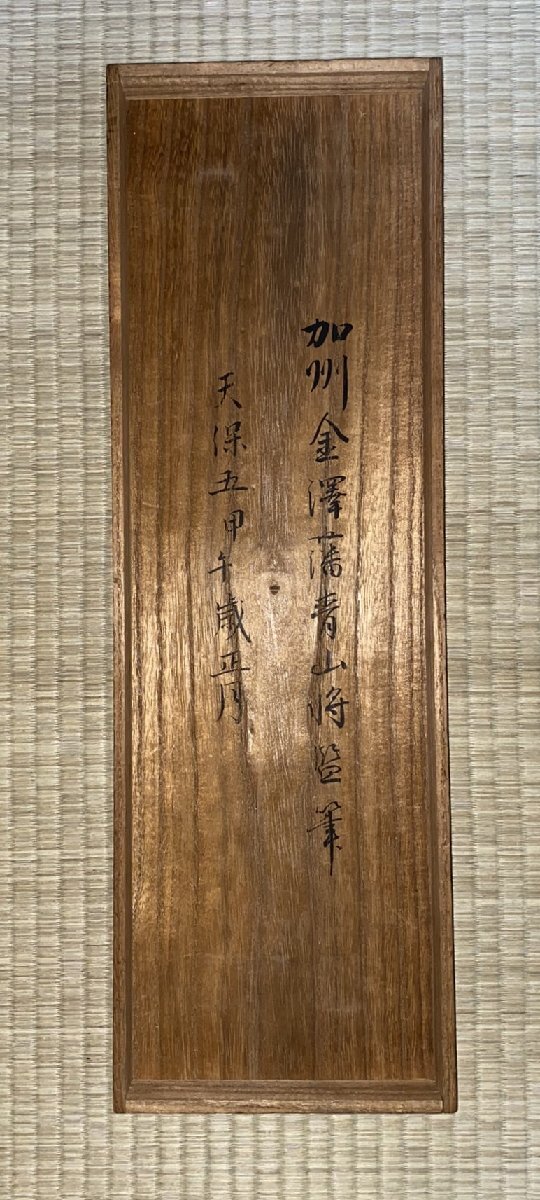 加州金澤藩青山将監筆
天保五甲午歳正月